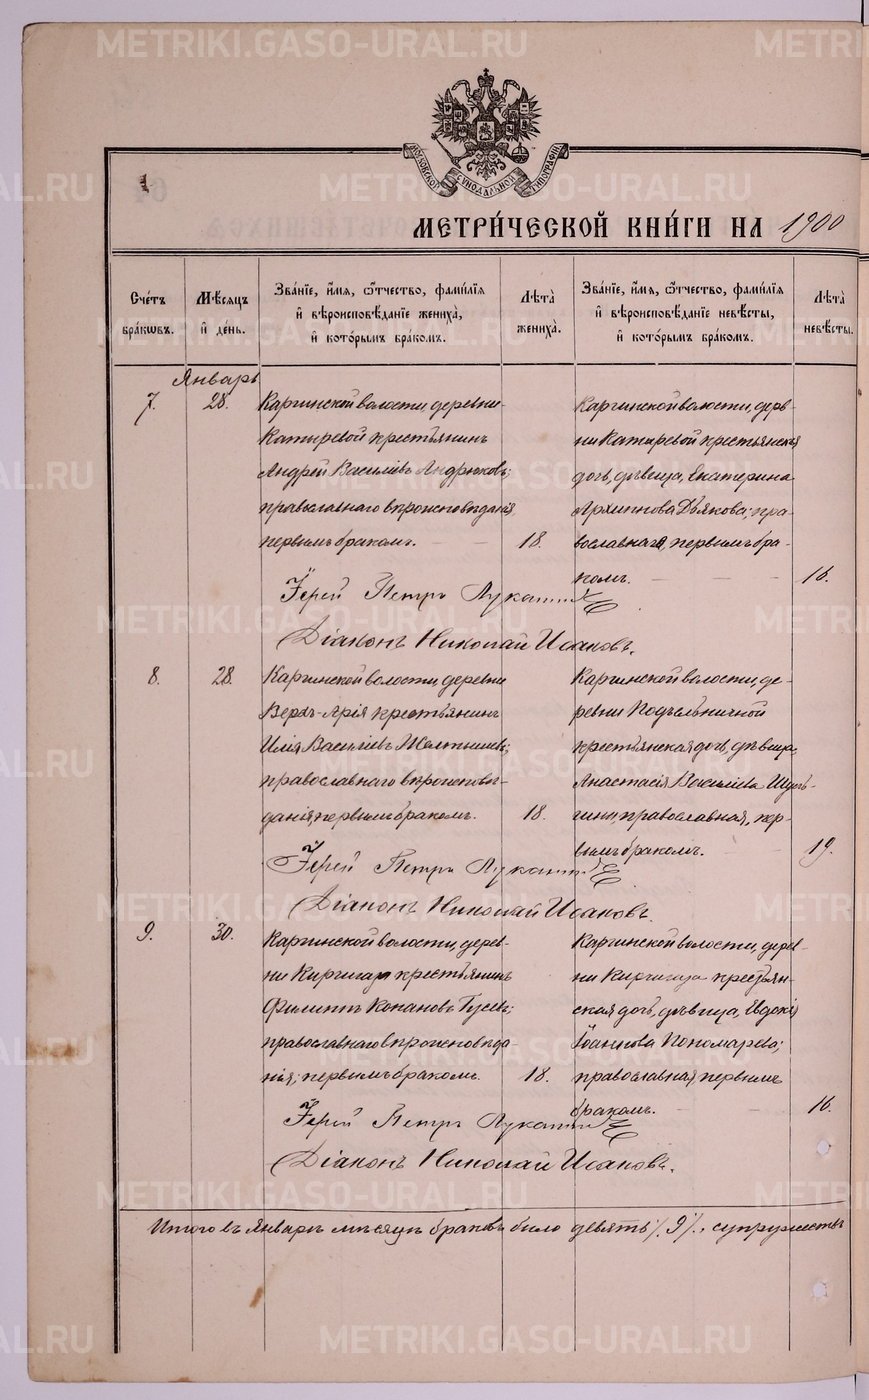 METRIKI.GASO-URAL.RU
МОСКОВСКОЙ СѴНОДАЛЬНОЙ ТИПОГРАФІИ
МЕТРИ́ЧЕСКОЙ КНИ́ГИ НА 1900
Сче́тъ бра́кѡвъ.
Мѣ́сяцъ и҆ де́нь.
Зва́нїе, и҆́мя, ѻ҆́тчество, фами́лїя и҆ вѣроисповѣ́данїе жениха̀, и҆ кото́рымъ бра́комъ.
Лѣ́та жениха̀.
Зва́нїе, и҆́мя, ѻ҆́тчество, фами́лїя и҆ вѣроисповѣ́данїе невѣ́сты, и҆ кото́рымъ бра́комъ.
Лѣ́та невѣ́сты.
Январь
7. 28.
Каргинской волости, деревни
Катыревой крестьянинъ
Андрей Василіевъ Андрюковъ;
православнаго вѣроисповѣданія,
первымъ бракомъ. 18.
Каргинской волости, дерев-
ни Катыревой крестьянская
дочь, дѣвица, Екатерина
Архиппова Дьякова; пра-
вославнаго, первымъ бра-
комъ. 16.
Іерей Петръ
Діаконъ Николай Исаковъ.
8. 28.
Каргинской волости, деревни
Верхъ-Арія крестьянинъ
Илія Василіевъ Желтышевъ;
православнаго вѣроисповѣ-
данія, первымъ бракомъ. 18.
Каргинской волости, де-
ревни Подъельничной
крестьянская дочь, дѣвица,
Анастасія Василіева
православная, пер-
вымъ бракомъ. 19.
Іерей Петръ
Діаконъ Николай Исаковъ.
9. 30.
Каргинской волости, дерев-
ни крестьянинъ
Филиппъ Кононовъ Гусевъ;
православнаго вѣроисповѣда-
нія; первымъ бракомъ. 18.
Каргинской волости, дерев-
ни крестьян-
ская дочь, дѣвица, Евдокія
Іоаннова Пономарева;
православная, первымъ
бракомъ. 16.
Іерей Петръ
Діаконъ Николай Исаковъ.
Итого въ Январѣ мѣсяцѣ браковъ было девять /9/, супружествъ